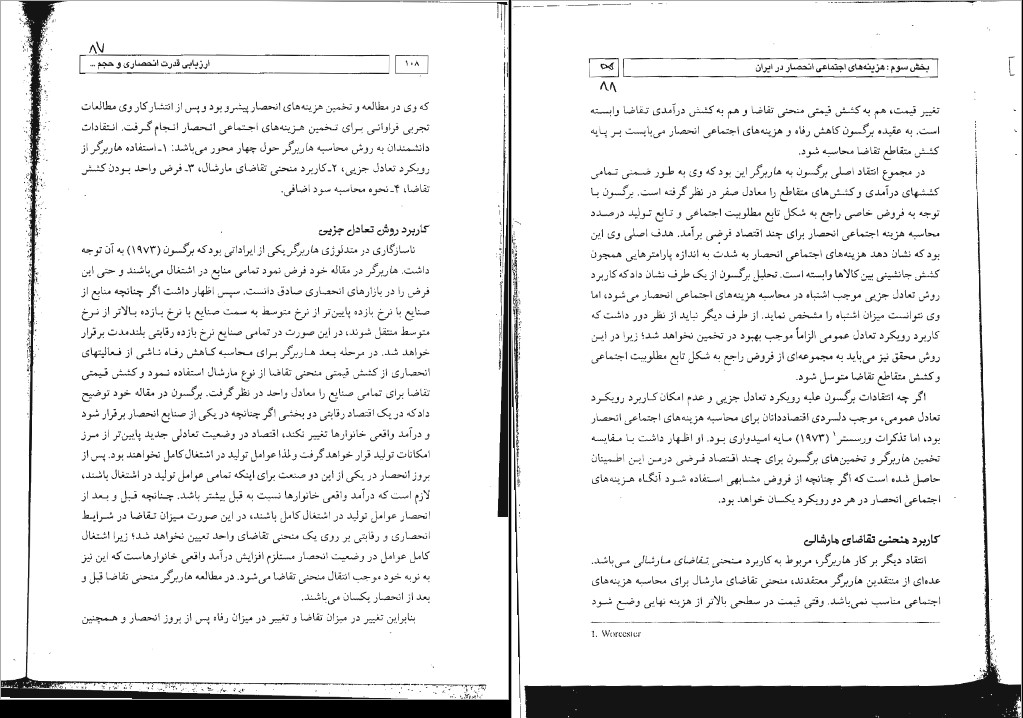 ۸۷
۱۰۸ ارزیابی قدرت انحصاری و حجم ...
که وی در مطالعه و تخمین هزینه‌های انحصار پیشرو بود و پس از انتشار کار وی مطالعات
تجربی فراوانی برای تخمین هزینه‌های اجتماعی انحصار انجام گرفت. انتقادات
دانشمندان به روش محاسبه هاربرگر حول چهار محور می‌باشد: ۱ـ استفاده هاربرگر از
رویکرد تعادل جزیی، ۲ـ کاربرد منحنی تقاضای مارشال، ۳ـ فرض واحد بودن کشش
تقاضا، ۴ـ نحوه محاسبه سود اضافی.
کاربرد روش تعادل جزیی
ناسازگاری در متدلوژی هاربرگر یکی از ایراداتی بود که برگسون (۱۹۷۳) به آن توجه
داشت. هاربرگر در مقاله خود فرض نمود تمامی منابع در اشتغال می‌باشند و حتی این
فرض را در بازارهای انحصاری صادق دانست. سپس اظهار داشت اگر چنانچه منابع از
صنایع با نرخ بازده پایین‌تر از نرخ متوسط به سمت صنایع با نرخ بازده بالاتر از نرخ
متوسط منتقل شوند، در این صورت در تمامی صنایع نرخ بازده رقابتی بلندمدت برقرار
خواهد شد. در مرحله بعد هاربرگر برای محاسبه کاهش رفاه ناشی از فعالیتهای
انحصاری از کشش قیمتی منحنی تقاضا از نوع مارشال استفاده نمود و کشش قیمتی
تقاضا برای تمامی صنایع را معادل واحد در نظر گرفت. برگسون در مقاله خود توضیح
داد که در یک اقتصاد رقابتی دو بخشی اگر چنانچه در یکی از صنایع انحصار برقرار شود
و درآمد واقعی خانوارها تغییر نکند، اقتصاد در وضعیت تعادلی جدید پایین‌تر از مرز
امکانات تولید قرار خواهد گرفت و لذا عوامل تولید در اشتغال کامل نخواهند بود. پس از
بروز انحصار در یکی از این دو صنعت برای اینکه تمامی عوامل تولید در اشتغال باشند،
لازم است که درآمد واقعی خانوارها نسبت به قبل بیشتر باشد. چنانچه قبل و بعد از
انحصار عوامل تولید در اشتغال کامل باشند، در این صورت میزان تقاضا در شرایط
انحصاری و رقابتی بر روی یک منحنی تقاضای واحد تعیین نخواهد شد؛ زیرا اشتغال
کامل عوامل در وضعیت انحصار مستلزم افزایش درآمد واقعی خانوارهاست که این نیز
به نوبه خود موجب انتقال منحنی تقاضا می‌شود. در مطالعه هاربرگر منحنی تقاضا قبل و
بعد از انحصار یکسان می‌باشند.
بنابراین تغییر در میزان تقاضا و تغییر در میزان رفاه پس از بروز انحصار و همچنین
بخش سوم : هزینه‌های اجتماعی انحصار در ایران
۸۸
تغییر قیمت، هم به کشش قیمتی منحنی تقاضا و هم به کشش درآمدی تقاضا وابسته
است. به عقیده برگسون کاهش رفاه و هزینه‌های اجتماعی انحصار می‌بایست بر پایه
کشش متقاطع تقاضا محاسبه شود.
در مجموع انتقاد اصلی برگسون به هاربرگر این بود که وی به طور ضمنی تمامی
کششهای درآمدی و کشش‌های متقاطع را معادل صفر در نظر گرفته است. برگسون با
توجه به فروض خاصی راجع به شکل تابع مطلوبیت اجتماعی و تابع تولید درصدد
محاسبه هزینه اجتماعی انحصار برای چند اقتصاد فرضی برآمد. هدف اصلی وی این
بود که نشان دهد هزینه‌های اجتماعی انحصار به شدت به اندازه پارامترهایی همچون
کشش جانشینی بین کالاها وابسته است. تحلیل برگسون از یک طرف نشان داد که کاربرد
روش تعادل جزیی موجب اشتباه در محاسبه هزینه‌های اجتماعی انحصار می‌شود، اما
وی نتوانست میزان اشتباه را مشخص نماید. از طرف دیگر نباید از نظر دور داشت که
کاربرد رویکرد تعادل عمومی الزاماً موجب بهبود در تخمین نخواهد شد؛ زیرا در این
روش محقق نیز می‌باید به مجموعه‌ای از فروض راجع به شکل تابع مطلوبیت اجتماعی
و کشش متقاطع تقاضا متوسل شود.
اگر چه انتقادات برگسون علیه رویکرد تعادل جزیی و عدم امکان کاربرد رویکرد
تعادل عمومی، موجب دلسردی اقتصاددانان برای محاسبه هزینه‌های اجتماعی انحصار
بود، اما تذکرات ورسستر۱ (۱۹۷۳) مایه امیدواری بود. او اظهار داشت با مقایسه
تخمین هاربرگر و تخمین‌های برگسون برای چند اقتصاد فرضی درمن این اطمینان
حاصل شده است که اگر چنانچه از فروض مشابهی استفاده شود آنگاه هزینه‌های
اجتماعی انحصار در هر دو رویکرد یکسان خواهد بود.
کاربرد منحنی تقاضای مارشالی
انتقاد دیگر بر کار هاربرگر، مربوط به کاربرد منحنی تقاضای مارشالی می‌باشد.
عده‌ای از منتقدین هاربرگر معتقدند، منحنی تقاضای مارشال برای محاسبه هزینه‌های
اجتماعی مناسب نمی‌باشد. وقتی قیمت در سطحی بالاتر از هزینه نهایی وضع شود
1. Worcester